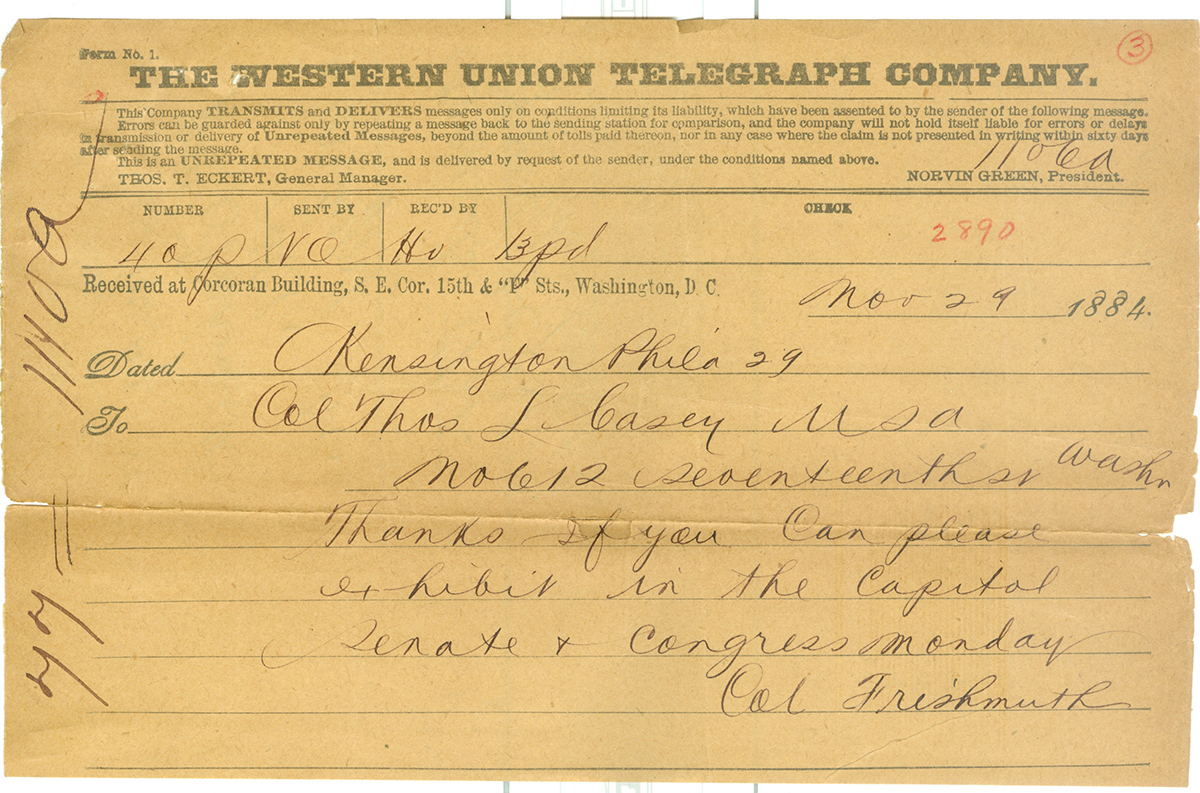 Form No. 1.
3
THE WESTERN UNION TELEGRAPH COMPANY.
This Company TRANSMITS and DELIVERS messages only on conditions limiting its liability, which have been assented to by the sender of the following message.
Errors can be guarded against only by repeating a message back to the sending station for comparison, and the company will not hold itself liable for errors or delays
in transmission or delivery of Unrepeated Messages, beyond the amount of tolls paid thereon, nor in any case where the claim is not presented in writing within sixty days
after sending the message.
This is an UNREPEATED MESSAGE, and is delivered by request of the sender, under the conditions named above.
THOS. T. ECKERT, General Manager. NORVIN GREEN, President.
NUMBER SENT BY REC'D BY CHECK
40 p NO Ho 13 pd 2890
Received at Corcoran Building, S. E. Cor. 15th & "F" Sts., Washington, D. C.
Nov 29 1884.
Dated Kensington Phila 29
To Col Thos L Casey USA
No 612 Seventeenth St Washn
Thanks If you Can please
exhibit in the Capitol
Senate & Congress monday
Col Frishmuth